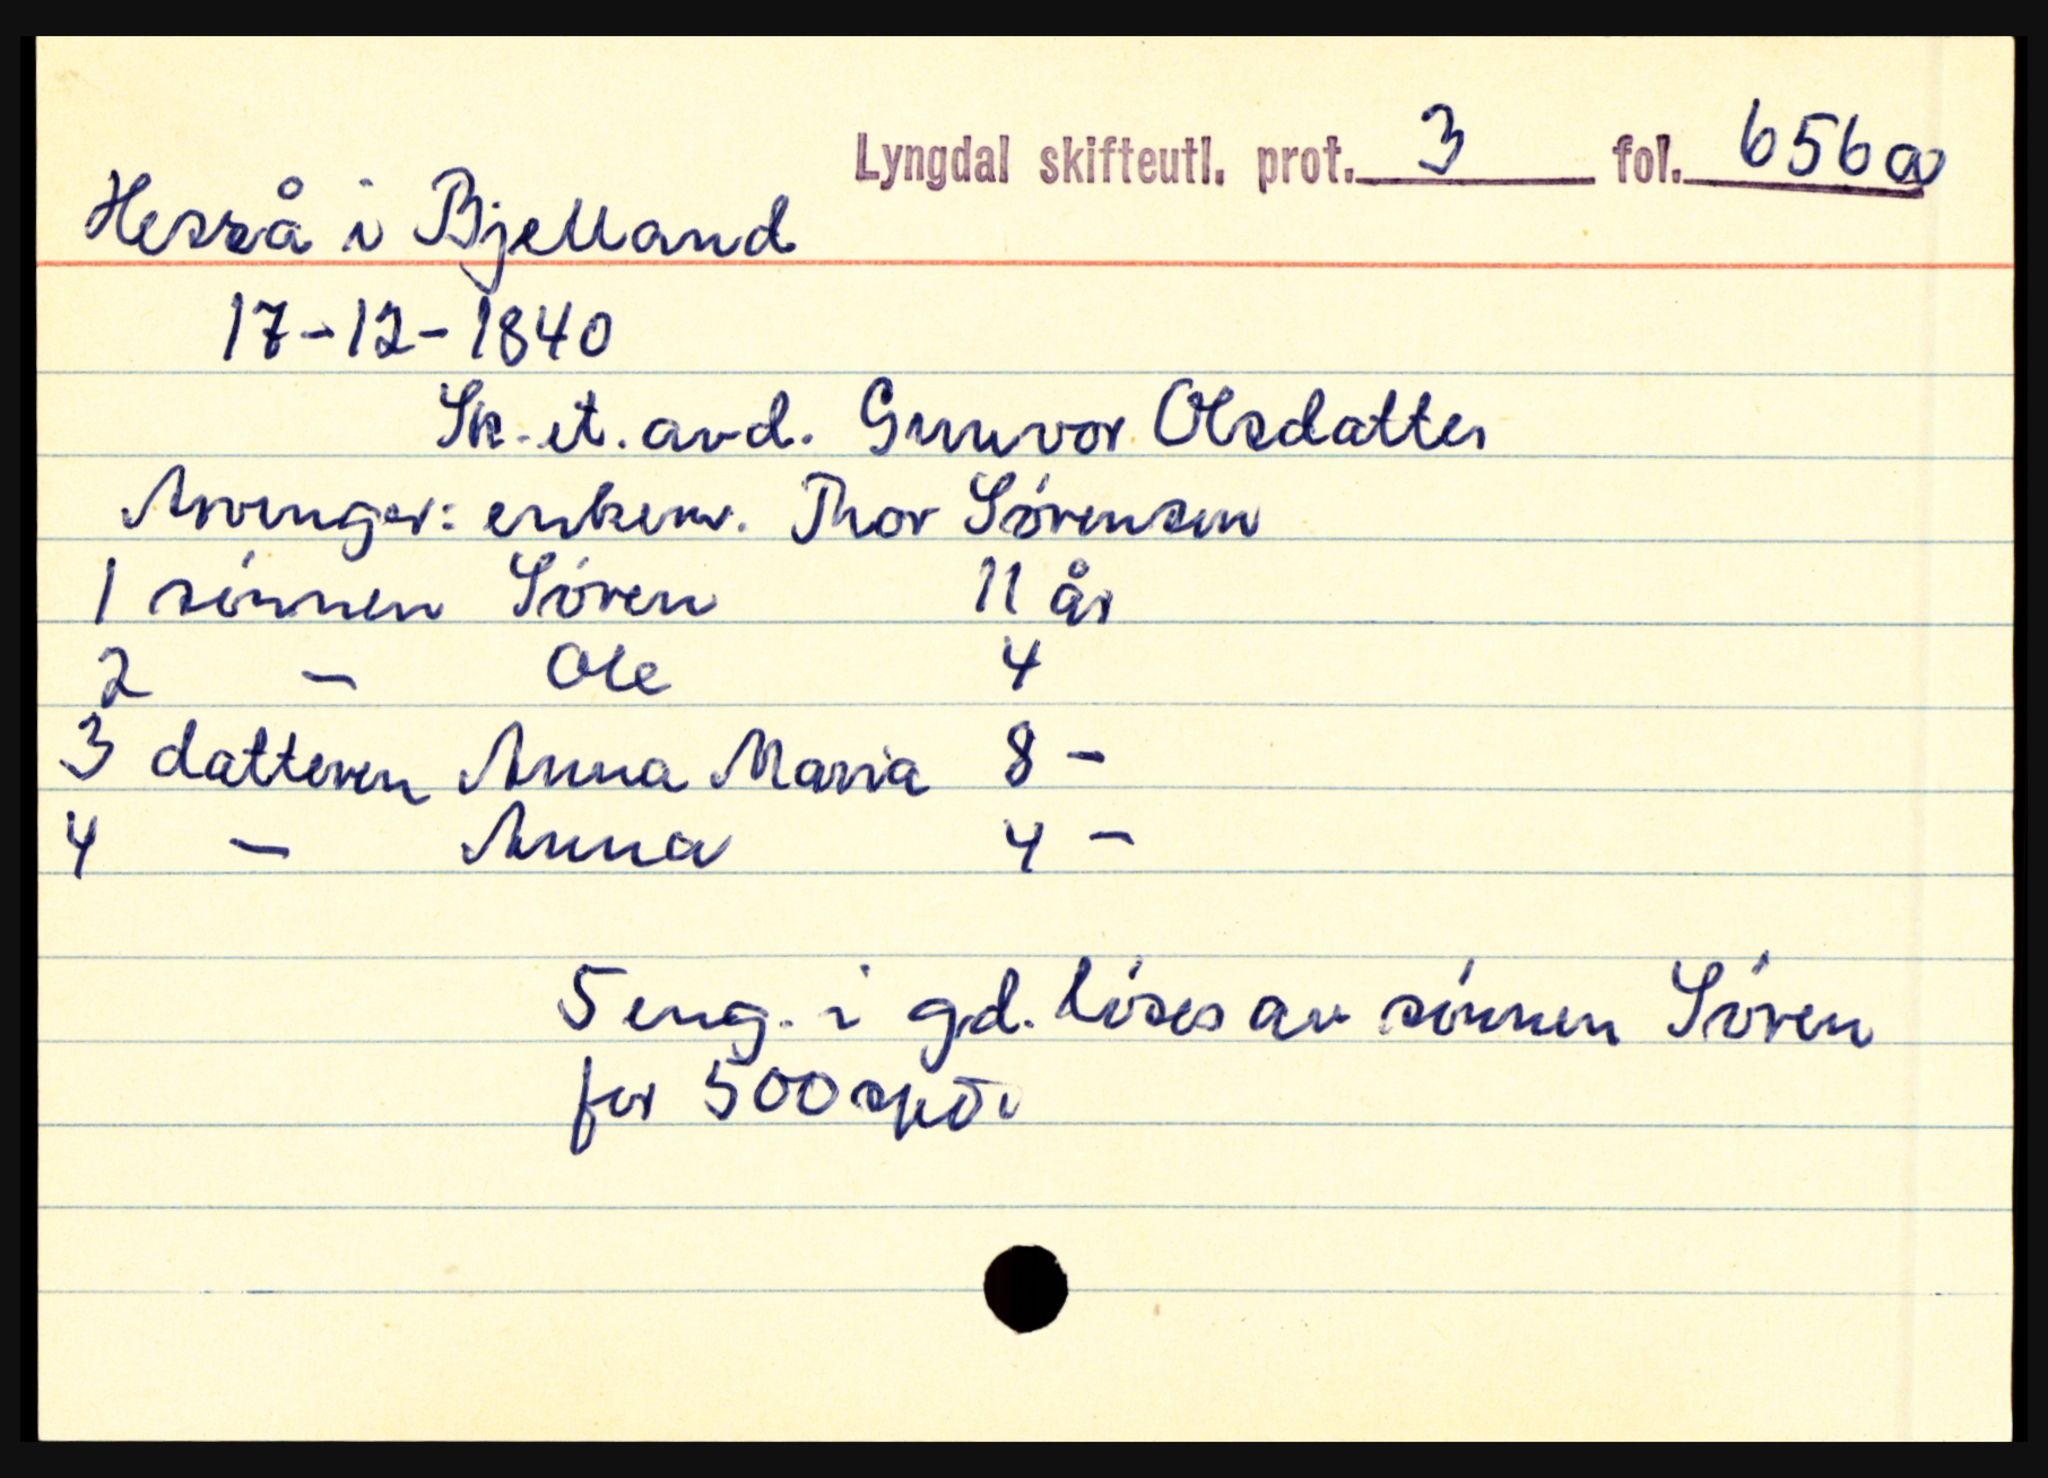 Lyngdal skifteutl. prot. 3 fol. 656a
Hesså i Bjelland
17-12-1840
Sk. et. avd. Gunvor Olsdatter
Arvinger: enkem. Thor Sørensen
1 sönnen Sören 11 år
2 - Ole 4
3 datteren Anna Maria 8 -
4 - Anna 4 -
5 eng. i gd. löses av sönnen Sören
for 500 spd.